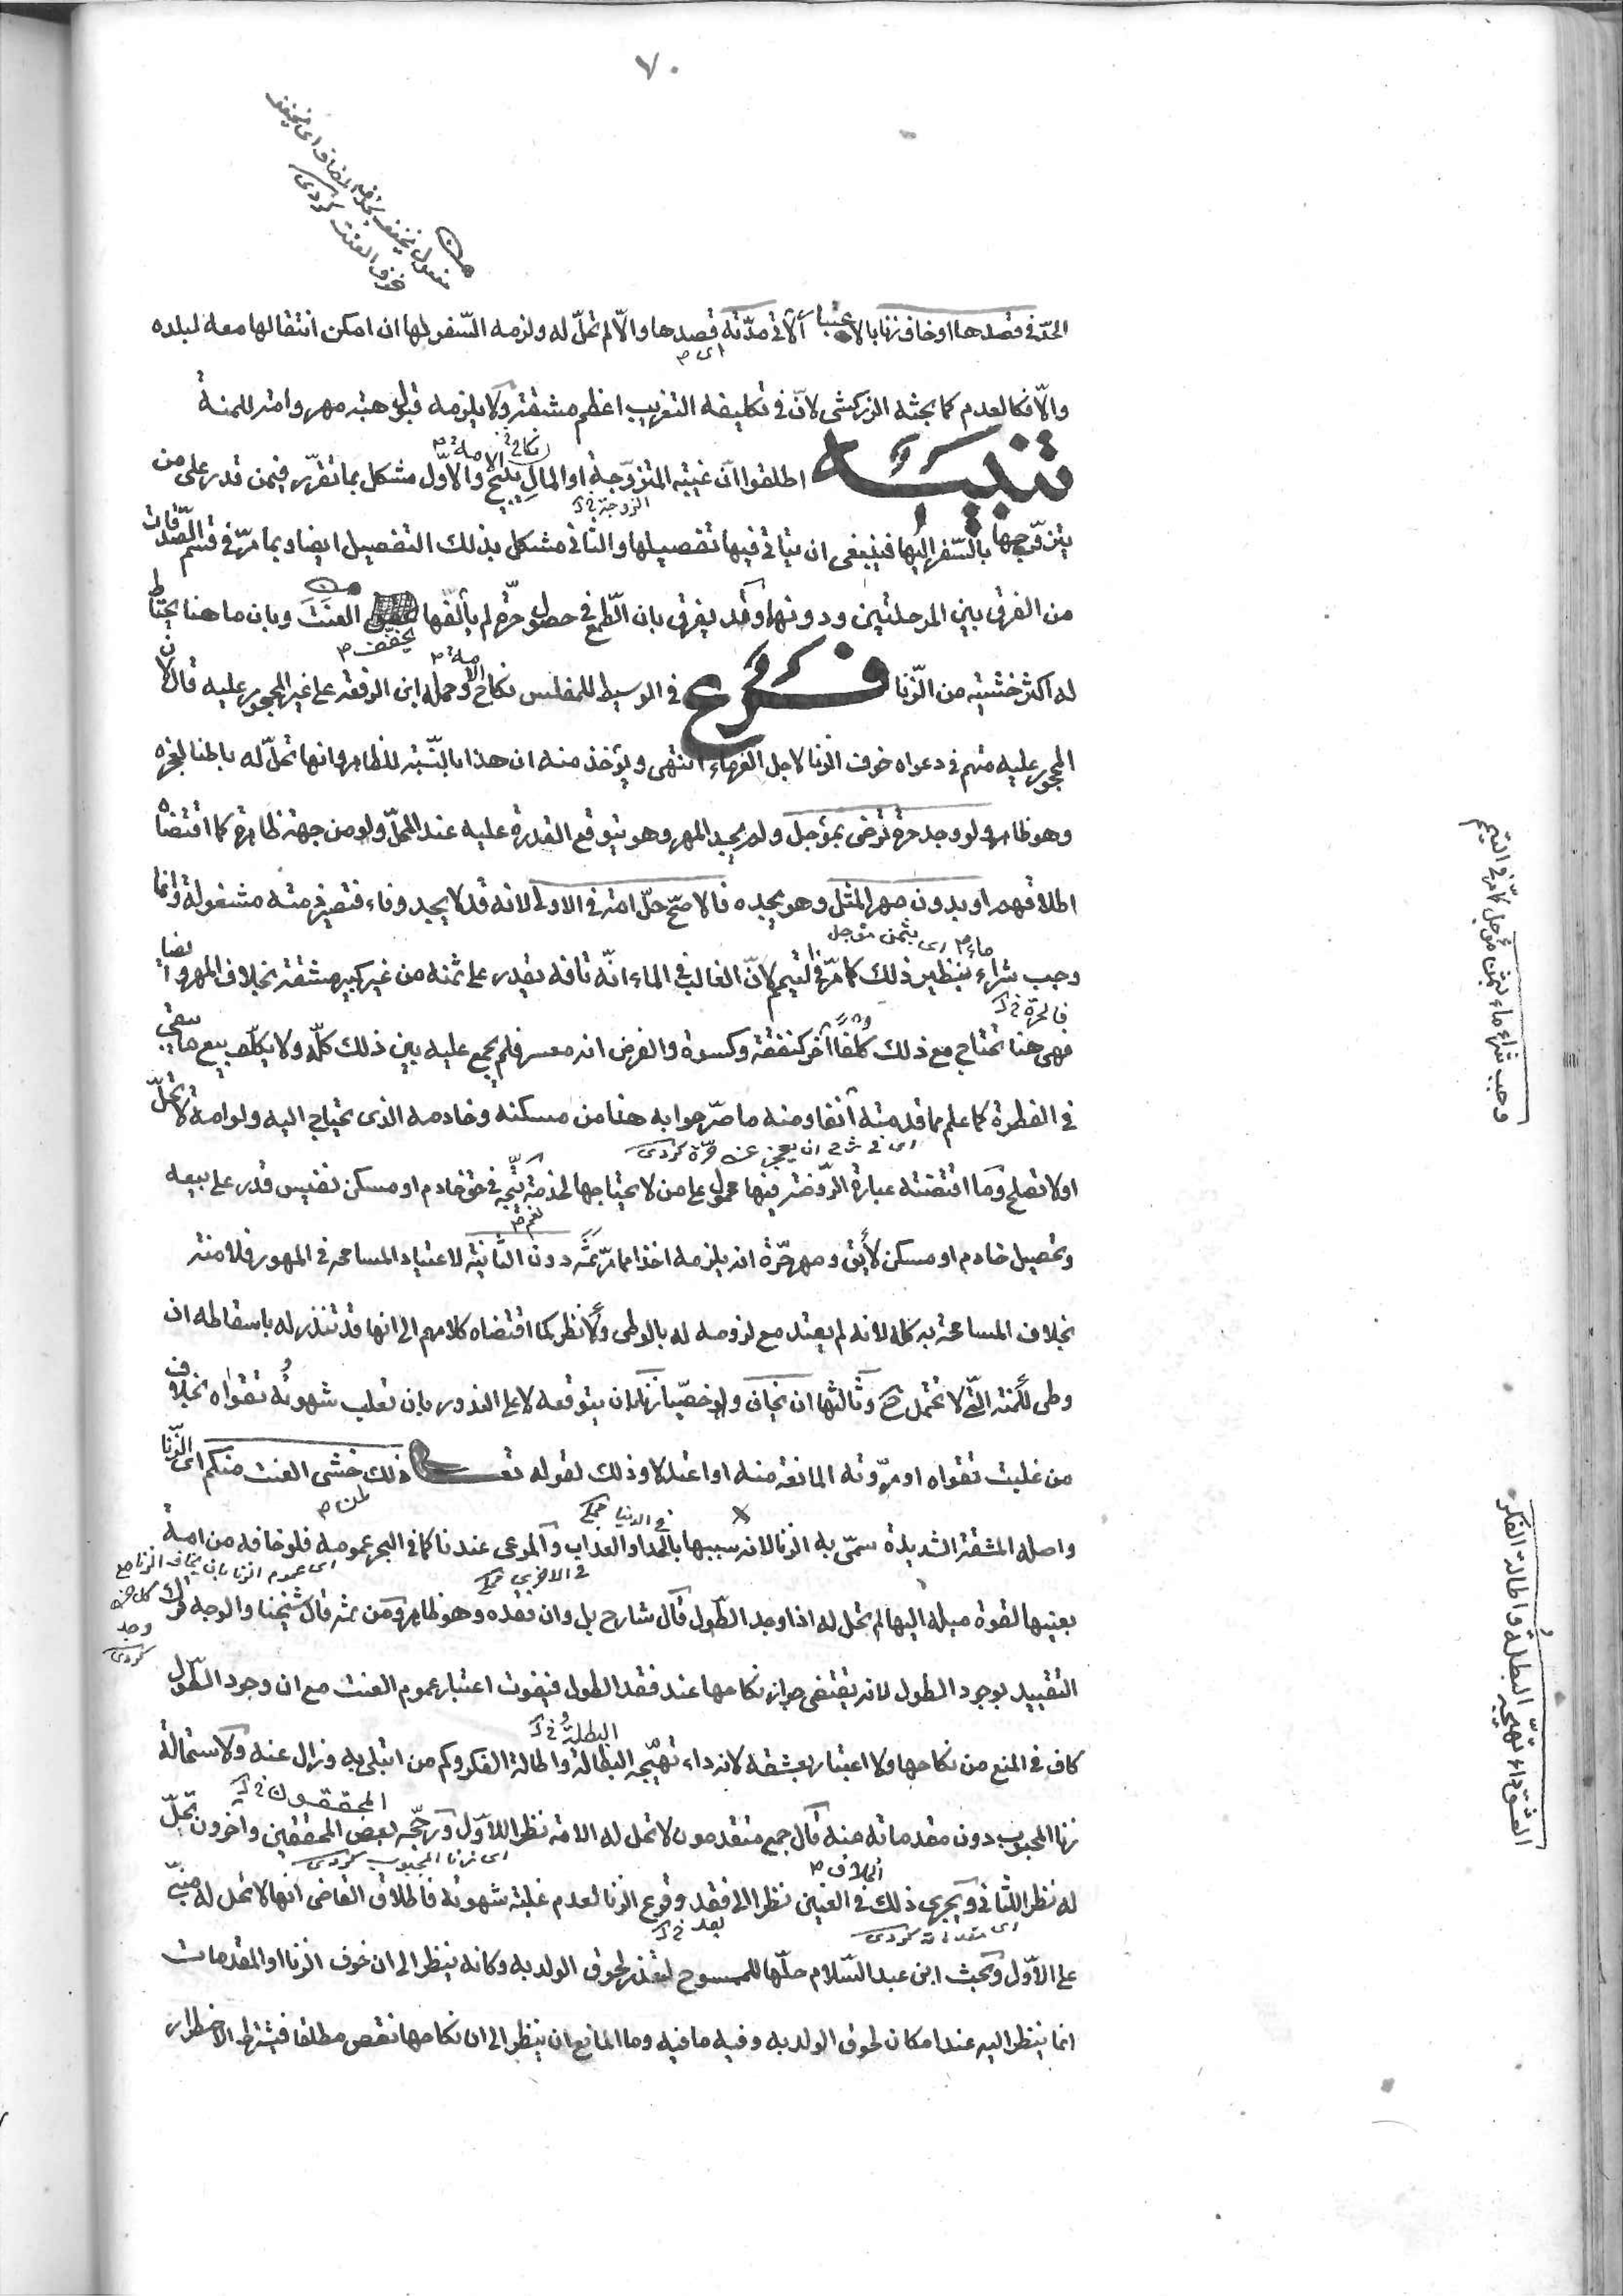 ٧٠
الحدّ فى قصدها او خاف زنا بالاعتبار الآتى مدّته اى قصدها والّا لم تحلّ له ولزمه السّفر لها ان امكن انتقالها معه لبلده
والّا فكالعدم كما بحثه الزركشى لانّ فى تكليفه التغريب اعظم مشقة ولا يلزمه قبول هبة مهر وامة للمنة
تنبيه اطلقوا انّ غيبة المتزوّجة او المال يبيح نكاح الامة والاوّل مشكل بما تقرّر فيمن قدر على من
يتزوّجها بالسّفر اليها فينبغى ان يتاتى فيها تفصيلها والثانى مشكل بذلك التفصيل ايضا وبما مرّ فى قسم الصّدقات
من الفرق بين المرحلتين ودونهما وقد يفرق بان الطّمع فى حصول حرّة لم يألفها يخفف العنت وبان ما هنا يحتاط
له اكثر خشية من الزّنا فرع فى الوسيط للمفلس نكاح الامة وحمله ابن الرفعة على غير المحجور عليه قال لان
المحجور عليه متهم فى دعواه خوف الزنا لاجل الغرماء انتهى ويؤخذ منه ان هذا بالنّسبة للظاهر وانها تحلّ له باطنا لعجزه
وهو ظاهر ولو وجد حرة ترضى بمؤجل ولم يجد المهر وهو يتوقع القدرة عليه عند المحلّ ولو من جهة ظاهرة كما اقتضاه
اطلاقهم او بدون مهر المثل وهو يجده فالاصحّ حلّ امة فى الاولى لانه قد لا يجد وفاء فتصير ذمته مشغولة وانما
وجب شراء ماء بنظير ذلك كما مرّ فى التيمم لانّ الغالب فى الماء انّه تافه يقدر على ثمنه من غير كبير مشقة بخلاف المهر وايضا
فهى هنا تحتاج مع ذلك كلفا اخر كنفقة وكسوة والفرض انه معسر فلم يجمع عليه بين ذلك كلّه ولا يكلّف بيع ما يبقى
فى الفطرة كما علم مما قدمته آنفا ومنه ما صرّحوا به هنا من مسكنه وخادمه الذى يحتاج اليه ولو امة لا تحلّ
او لا تصلح وما اقتضته عبارة الرّوضة فيها محمول على من لا يحتاجها لخدمة نعم يتّجه فى حق خادم او مسكن نفيس قدر على بيعه
وتحصيل خادم او مسكن لائق ومهر حرّة انه يلزمه اخذا مما مرّ ثمّه دون الثانية لاعتياد المسامحة فى المهور فلا منة
بخلاف المسامحة به كله لانه لم يعتد مع لزومه له بالوطى ولا نظر كما اقتضاه كلامهم الى انها قد تنذر له باسقاطه ان
وطى للمنة الّتى لا تحتمل ح وثالثها ان يخاف ولو خصيّا زنا بان يتوقعه لا على الندور بان تغلب شهوته تقواه بخلاف
من غلبت تقواه او مرّوته المانعة منه او اعتدلا وذلك لقوله تعالى ذلك لمن خشى العنت منكم اى الزّنا
واصله المشقة الشديدة سمّى به الزنا لانه سببها بالحد او العذاب والمرعى عندنا كما فى البحر عمومه فلو خافه من امة
بعينها لقوة ميله اليها لم تحل له اذا وجد الطّول قال شارح بل وان فقده وهو ظاهر ومن ثمّ قال شيخنا والوجه ترك
التقييد بوجود الطول لانه يقتضى جواز نكاحها عند فقد الطول فيفوت اعتبار عموم العنت مع ان وجود الطّول
كاف فى المنع من نكاحها ولا اعتبار بعشقه لانه داء تهيّجه البطالة واطالة الفكر وكم من ابتلى به وزال عنه ولاستحالة
زنا المجبوب دون مقدماته منه قال جمع متقدمون لا تحل له الامة نظرا للاوّل ورجّحه بعض المحققين وآخرون تحلّ
له نظرا للثانى ويجرى ذلك الخلاف فى العنين نظرا الى فقد وقوع الزنا لعدم غلبة شهوته فاطلاق القاضى انها لا تحل له مبنىّ
على الاوّل وبحث ابن عبد السّلام حلّها للممسوح لتعذر لحوق الولد به وكانه ينظر الى ان خوف الزنا او المقدمات
انما ينظر اليه عند امكان لحوق الولد به وفيه ما فيه وما المانع ان ينظر الى ان نكاحها نقص مطلقا فيشترط الاضطرار
وجب شراء ماء بثمن مؤجل كما مرّ فى التيمم
العشق داء تهيّجه البطلة واطالة الفكر
اى بثمن مؤجل
فالحرّة خ
الزوجة خ
اى فى شرح ان يعجز عن حرّة كردى
فى الدنيا
اى عموم الزنا بان يخاف الزنا مع كل من وجد كردى
البطلة خ
المحققون خ
اى زنا المجبوب كردى
اى مقدماته كردى